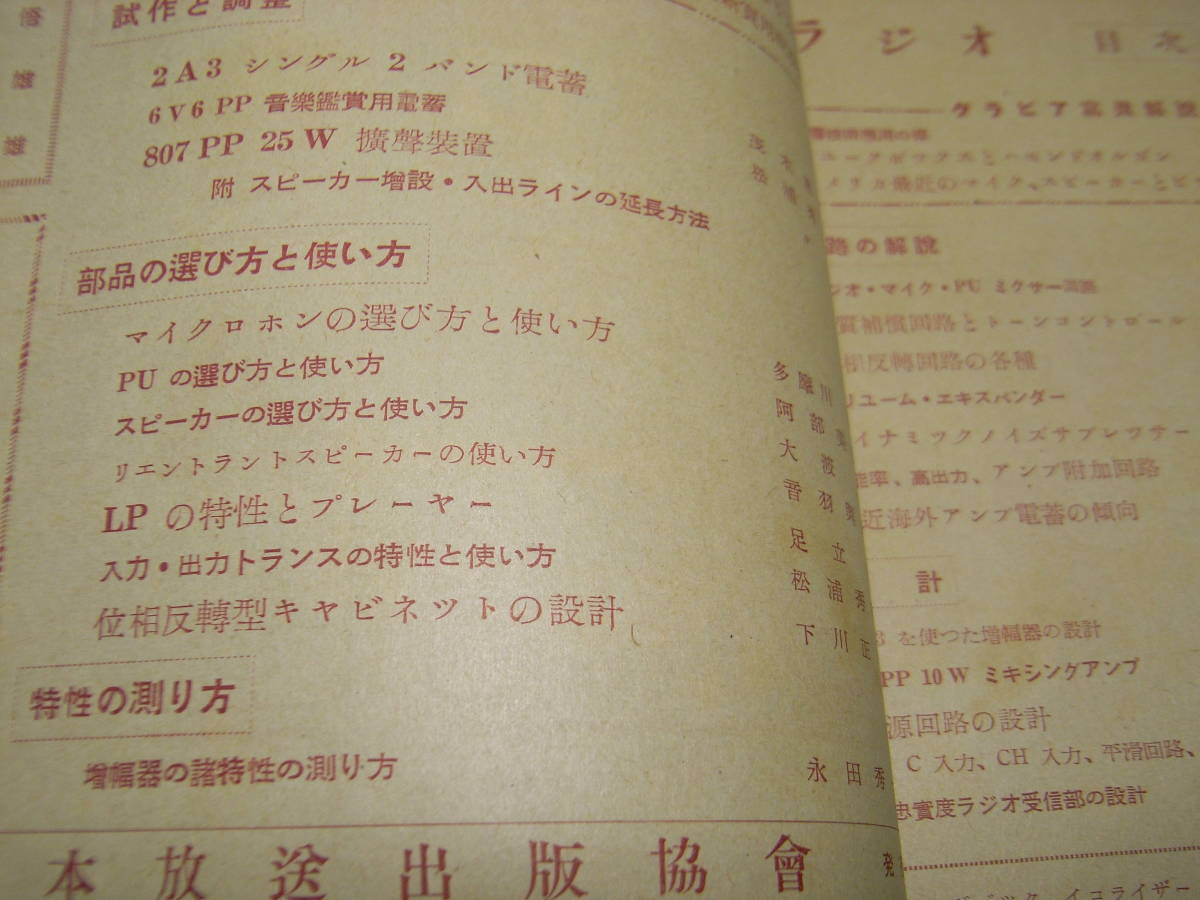 試作と調整
2A3 シングル 2 バンド電蓄
6V6 PP 音樂鑑賞用電蓄
807 PP 25W 擴聲裝置
附 スピーカー増設・入出ラインの延長方法
部品の選び方と使い方
マイクロホンの選び方と使い方
PU の選び方と使い方
スピーカーの選び方と使い方 多
リエントラントスピーカーの使い方 阿部
LP の特性とプレーヤー 大波
入力・出力トランスの特性と使い方 音羽
位相反轉型キヤビネツトの設計 足立
松浦秀
下川正
特性の測り方
増幅器の諸特性の測り方 永田秀
本放送出版協會 発
ラジオ 目次
グラビア
路の解說
ジオ・マイク・PU ミクサー回路
質補償回路とトーンコントロール
相反轉回路の各種
リユーム・エキスパンダー
イナミツクノイズサプレツサー
能率、高出力、アンプ附加回路
近海外アンプ電蓄の傾向
計
3 を使つた増幅器の設計
PP 10W ミキシングアンプ
源回路の設計
C 入力、CH 入力、平滑回路、
忠實度ラジオ受信部の設計
イコライザー